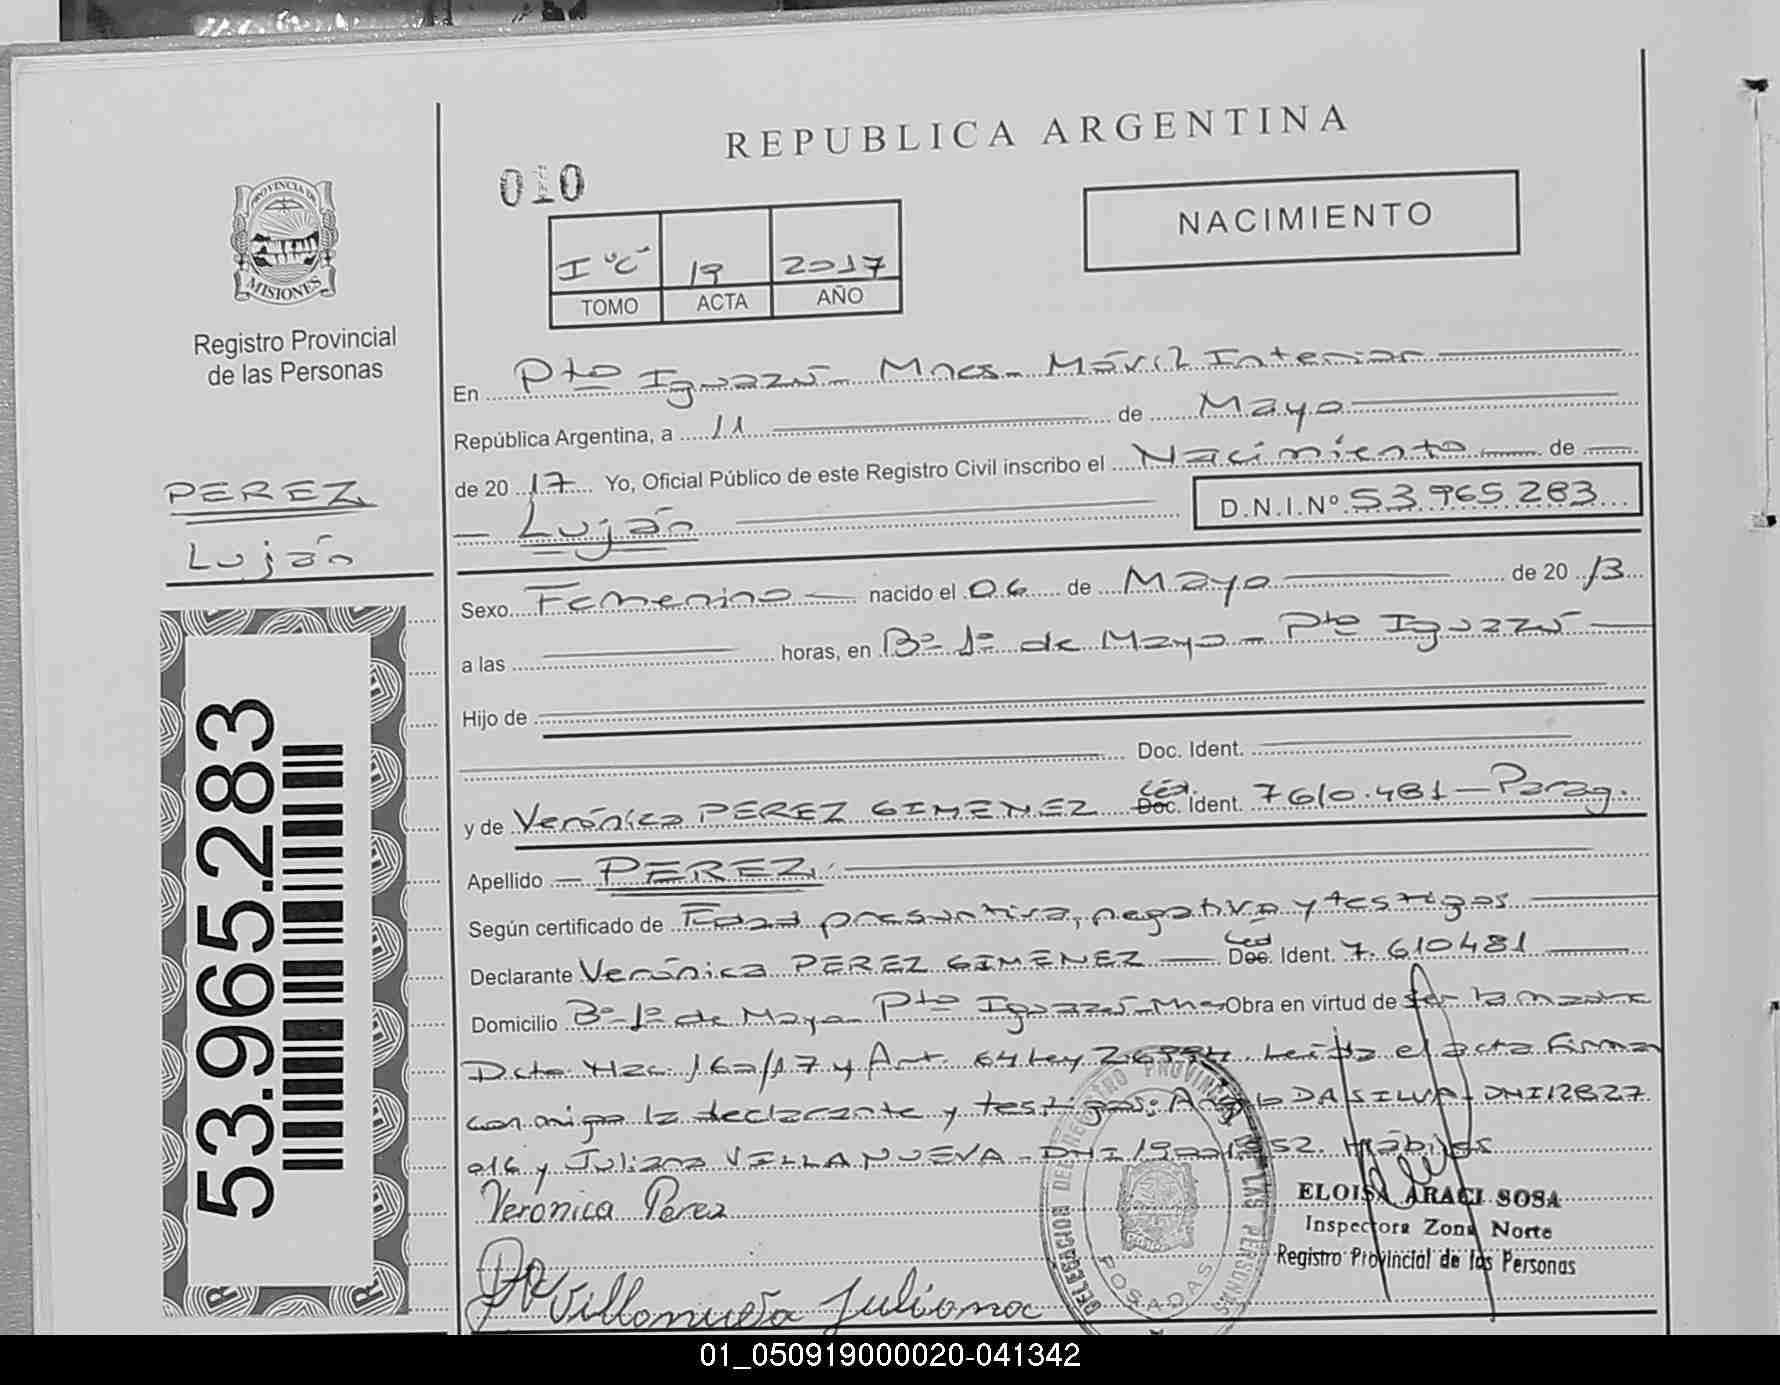 REPUBLICA ARGENTINA
010
NACIMIENTO
I "C" 19 2017
TOMO ACTA AÑO
PROVINCIA DE
MISIONES
Registro Provincial
de las Personas
PEREZ
Luján
53.965.283
En Pto Iguazú - Mnes - Móvil Interior
República Argentina, a 11 de Mayo
de 2017 Yo, Oficial Público de este Registro Civil inscribo el Nacimiento de
Luján
D.N.I.Nº 53.965.283
Sexo Femenino nacido el 06 de Mayo de 2013
a las horas, en Bº 1º de Mayo - Pto Iguazú
Hijo de
Doc. Ident.
y de Verónica PEREZ GIMENEZ Céd. Doc. Ident. 7610.481 - Parag.
Apellido PEREZ
Según certificado de Edad presuntiva, negativa y testigos
Declarante Verónica PEREZ GIMENEZ Céd Doc. Ident. 7.610481
Domicilio Bº 1º de Mayo - Pto Iguazú - Mnes Obra en virtud de ser la madre
Dcto. Nac. 160/17 y Art. 64 Ley Leída el acta firma
conmigo la declarante y testigos: DA SILVA - DNI 12827
016 y Juliana VILLANUEVA - DNI Hábiles
Veronica Perez
Villanueva Juliana
DELEGACION DEL REGISTRO PROVINCIAL DE LAS PERSONAS
POSADAS
ELOISA ARACI SOSA
Inspectora Zona Norte
Registro Provincial de las Personas
01_050919000020-041342